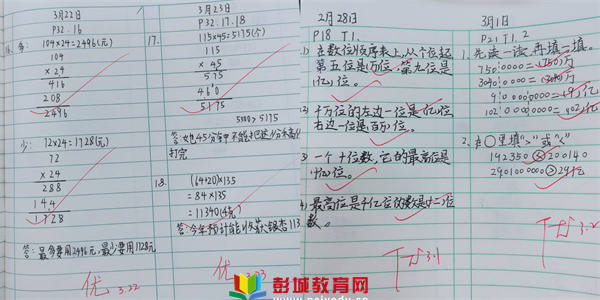 3月22日
P32. 16
多: 104×24=2496(元)
104
× 24
416
208
2496
少: 12×24=1728(元)
72
× 24
288
144
1728
答: 最多要用2496元,最少要用1728元
优 3.22
3月23日
P32. 17. 18
17. 115×45=5175(个)
115
× 45
575
460
5175
5000 > 5175
打完
18. (64+20)×135
= 84×135
= 11340(元)
优
2月28日
P18 T1.
1) 在数位顺序表上,从个位起
第五位是(万)位,第九位是
(亿)位。
2) 千万位的左边一位是(亿)位
右边一位是(百万)位。
3) 一个十位数,它的最高位是
(十亿)位。
4) 最高位是千亿位的数是(十二)位
数。
3.1
3月1日
P21 T1. 2
1. 先读一读,再填一填。
7500000=(750)万
2. 在○里填">"或"<"
192350<200140
290100000>29亿
3.2
彭城教育网